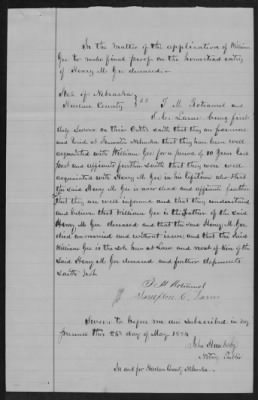 In the matter of the application of William
Gee to make final proof on the homestead entry
of Henry M. Gee deceased
State of Nebraska
Harlan County } SS
and
being first
duly sworn on their oaths saith that they are
and live at Nebraska that they have been well
acquainted with William Gee for a period of 10 years last
past and affiants further saith that they were well
acquainted with Henry M. Gee in his lifetime also that
the said Henry M. Gee is now dead and affiants further
that they are well informed and that they understand
and believe that William Gee is the Father of the said
Henry M. Gee deceased and that the said Henry M. Gee
died unmarried and without issue and that the said
William Gee is the sole heir at Law and next of Kin of the
said Henry M. Gee deceased and further deponents
saith not.
Sworn to before me and subscribed in my
presence this 28th day of May 1884
John
Notary Public
In and for Harlan County Nebraska